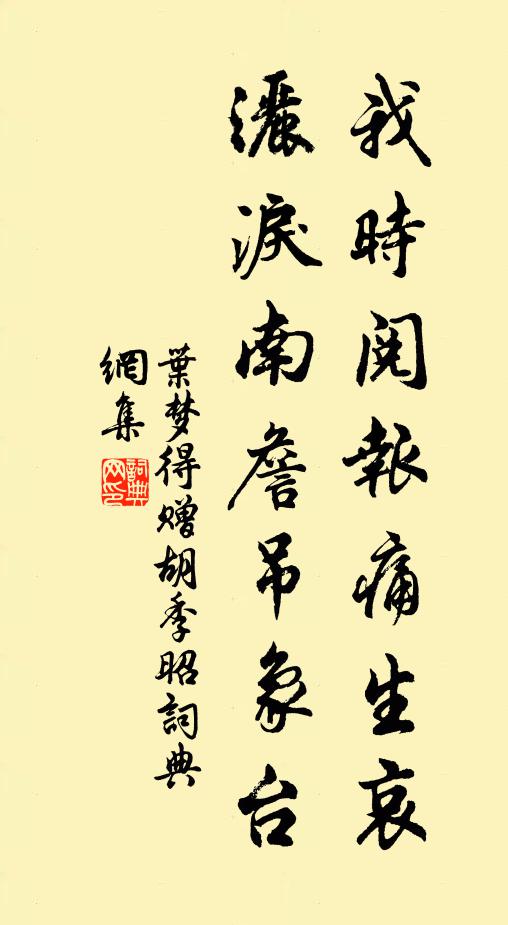 我時閱報痛生哀
灑淚南詹吊象台
葉梦得赠胡季昭詞典
網集
詞典
网印